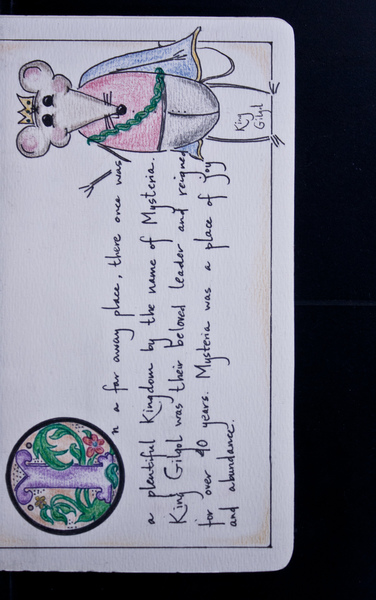 In a far away place, there once was
a plentiful Kingdom by the name of Mysteria.
King Gilgol was their beloved leader and reigned
for over 40 years. Mysteria was a place of joy
and abundance.
King
Gilgol